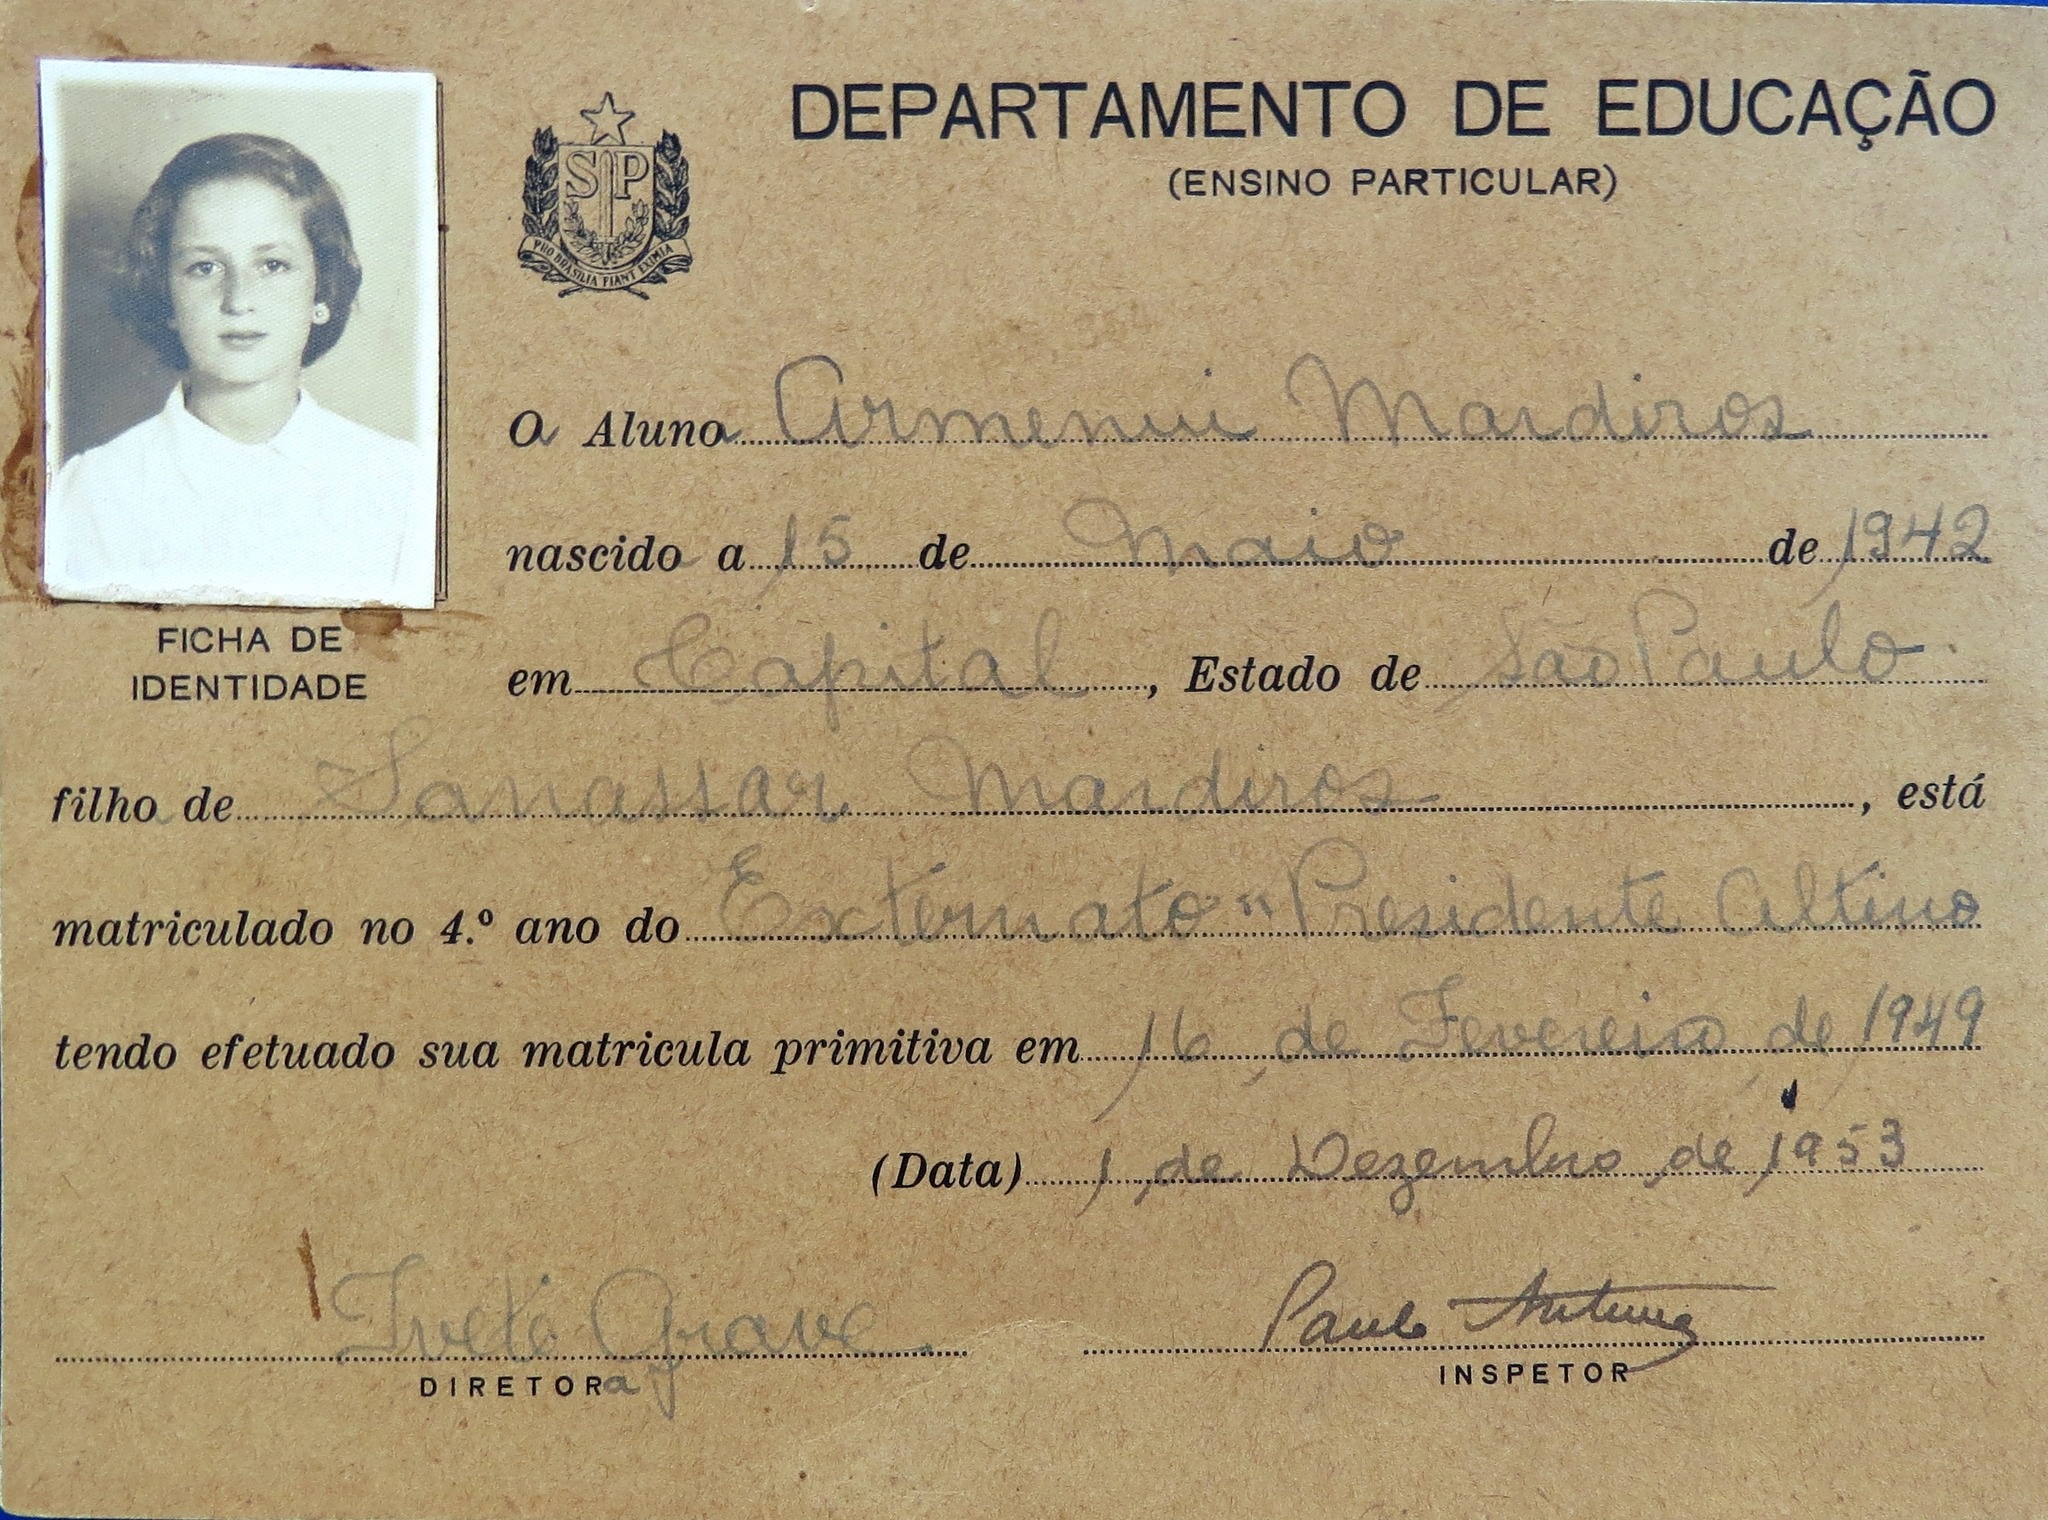 DEPARTAMENTO DE EDUCAÇÃO
(ENSINO PARTICULAR)
SP
PRO BRASILIA FIANT EXIMIA
FICHA DE
IDENTIDADE
O Aluno Armenui Mardiros
nascido a 15 de Maio de 1942
em Capital, Estado de São Paulo.
filho de Sanassar Mardiros, está
matriculado no 4.º ano do Externato "Presidente Altino
tendo efetuado sua matricula primitiva em 16, de Fevereiro, de 1949
(Data) 1, de Dezembro, de 1953
Ivete Grave
DIRETORa
Paulo Antunes
INSPETOR